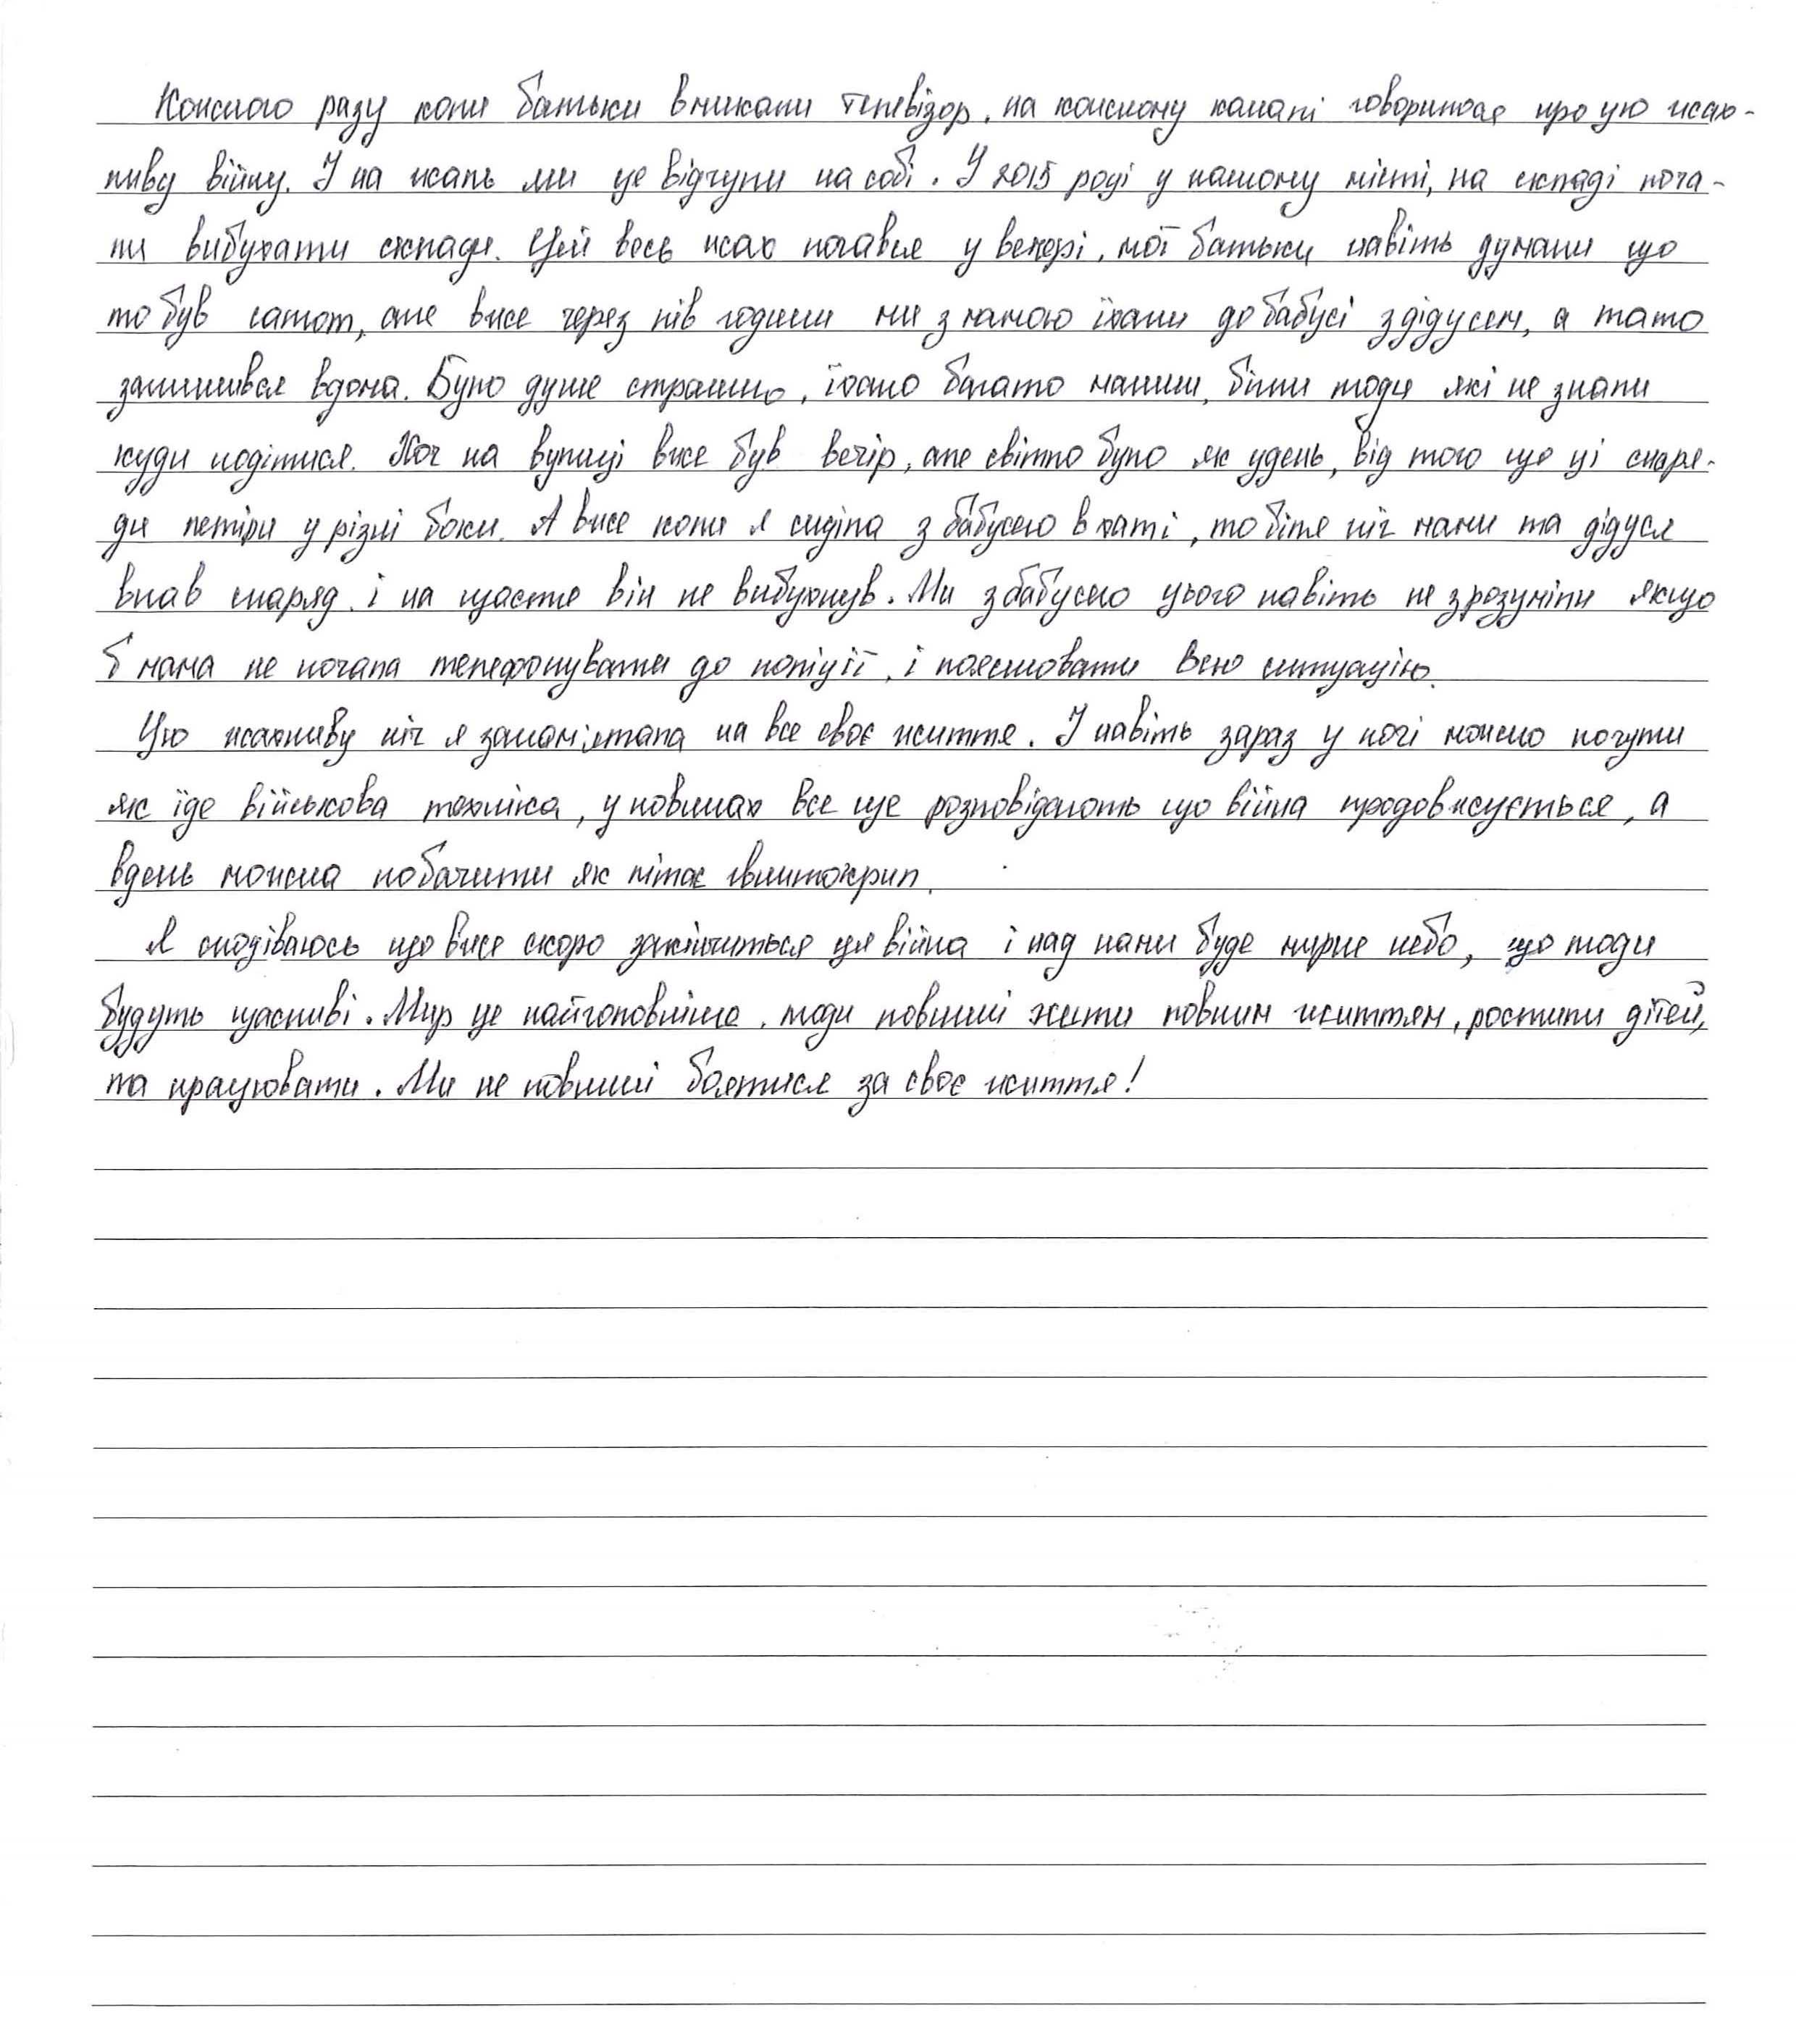 Кожного разу коли батьки вмикали телевізор, на кожному каналі говорилося про цю жах-
ливу війну. І на жаль ми це відчули на собі. У 2015 році у нашому місті, на складі поча-
ли вибухати склади. Цей весь жах почався у вечері, мої батьки навіть думали що
то був салют, але вже через пів години ми з мамою їхали до бабусі з дідусем, а тато
залишився вдома. Було дуже страшно, їхало багато машин, бігли люди які не знали
куди подітися. Хоч на вулиці вже був вечір, але світло було як удень, від того що ці снаря-
ди летіли у різні боки. А вже коли я сиділа з бабусею в хаті, то біля ніг мами та дідуся
впав снаряд і на щастя він не вибухнув. Ми з бабусею цього навіть не зрозуміли якщо
б мама не почала телефонувати до поліції, і пояснювати всю ситуацію.
Цю жахливу ніч я запам'ятала на все своє життя. І навіть зараз у ночі можно почути
як їде військова техніка, у новинах все ще розповідають що війна продовжується, а
вдень можна побачити як літає гвинтокрил.
Я сподіваюсь що вже скоро закінчиться ця війна і над нами буде мирне небо, що люди
будуть щасливі. Мир це найголовніше, люди повинні жити повним життям, ростити дітей,
та працювати. Ми не повинні боятися за своє життя!